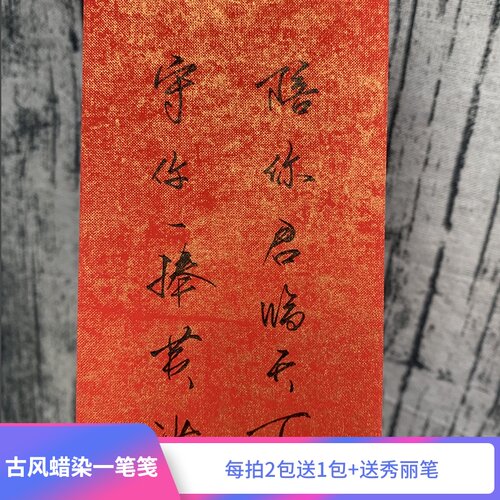 陪你君临天下
守你一捧黄沙
古风蜡染一笔笺
每拍2包送1包+送秀丽笔